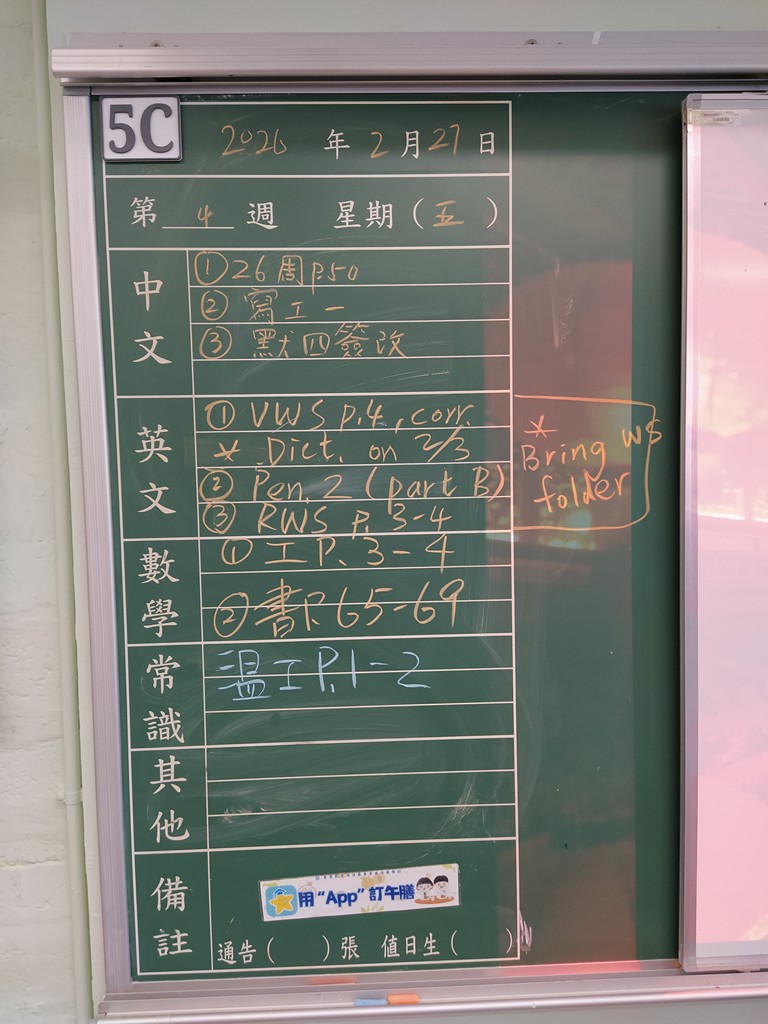 5C
2026 年 2 月 27 日
第 4 週 星期（五）
中文
① 26周p50
② 寫工一
③ 默四簽改
英文
① VWS p.4, corr.
* Dict. on 2/3
② Pen. 2 (part B)
③ RWS p. 3-4
* Bring WS
folder
數學
① 工P. 3-4
② 書P. 65-69
常識
溫工P.1-2
其他
備註
用“App”訂午膳
通告（ ）張 值日生（ ）